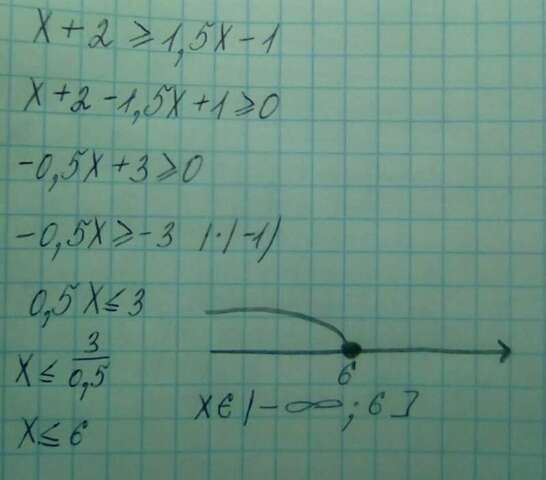 x + 2 ≥ 1,5x - 1
x + 2 - 1,5x + 1 ≥ 0
-0,5x + 3 ≥ 0
-0,5x ≥ -3 |·(-1)
0,5x ≤ 3
x ≤ 3/0,5
x ≤ 6
6
x ∈ (-∞; 6]